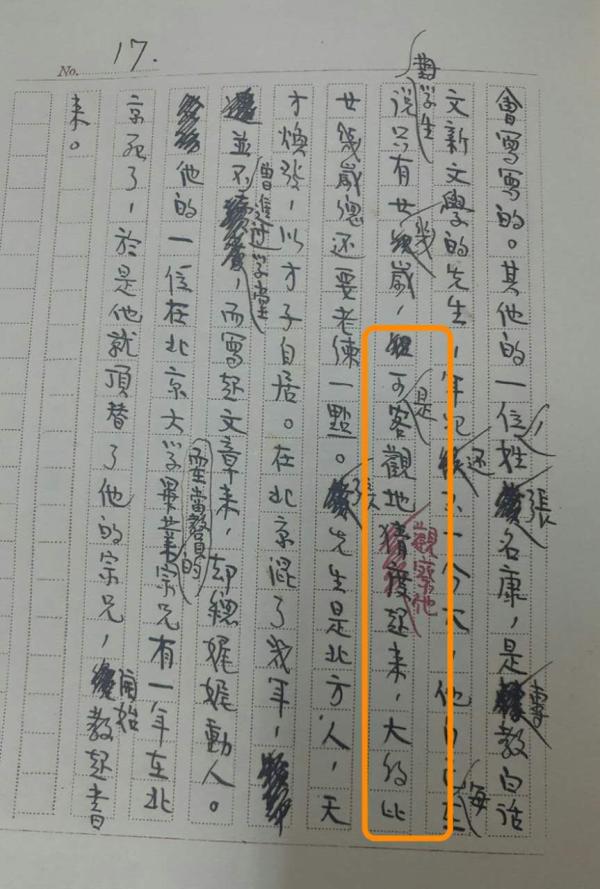 No. 17.
會寫寫的。其他的一位姓張名康，是專教白話
文新文學的先生，年紀还不一今大，他自己每
對學生說只有廿幾歲，但是可客觀地觀察他猜度起來，大約比
廿幾歲總还要老練一點。張先生是北方人，天
才煥發，以才子自居。在北京混了幾年，
並不曾進過学堂，而寫起文章來，却總娓娓動人。
他的一位在北京大学畢業要當教員的宗兄有一年在北
京死了，於是他就頂替了他的宗兄，開始教起書
來。